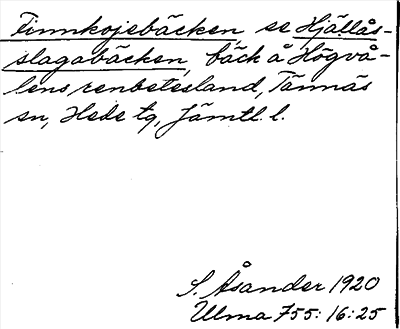 Finnkojebäcken, se Hjällås-
slagabäcken, bäck å Högvå-
lens renbetesland, Tännäs
sn, Hede tg, Jämtl. l.
S. Åsander 1920
Ulma 755: 16: 25